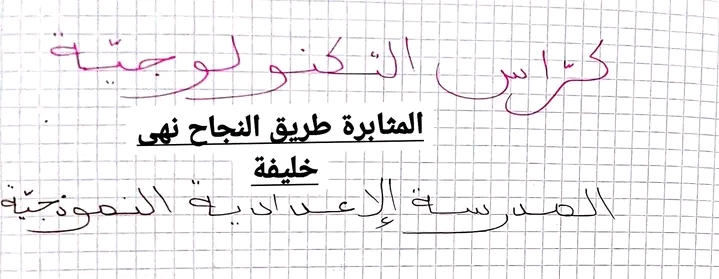 كرّاس التكنولوجيّة
المثابرة طريق النجاح نهى
خليفة
المدرسة الإعدادية النموذجيّة